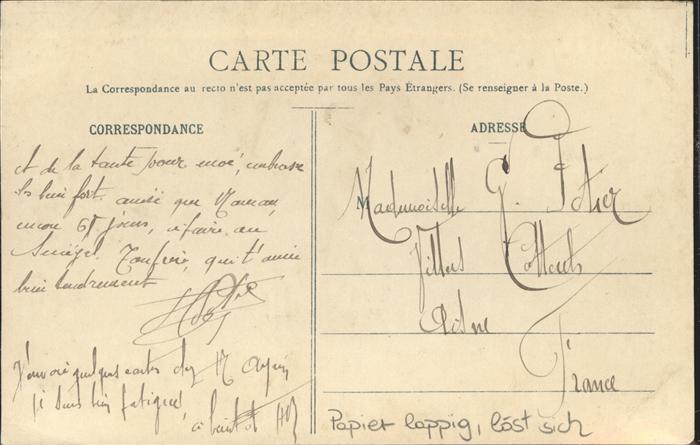 CARTE POSTALE
La Correspondance au recto n'est pas acceptée par tous les Pays Étrangers. (Se renseigner à la Poste.)
CORRESPONDANCE
et de la tante pour moi, embrasse
les bien fort aussi que Maman,
encore 65 jours, à faire au
Sénégal. Ton frère, qui t'aime
bien tendrement
J'envoie quelques cartes chez M
je suis bien fatigué,
à bientôt
ADRESSE
Mademoiselle G. Potier
Villers Cotterets
Aisne
France
Papier lappig, löst sich